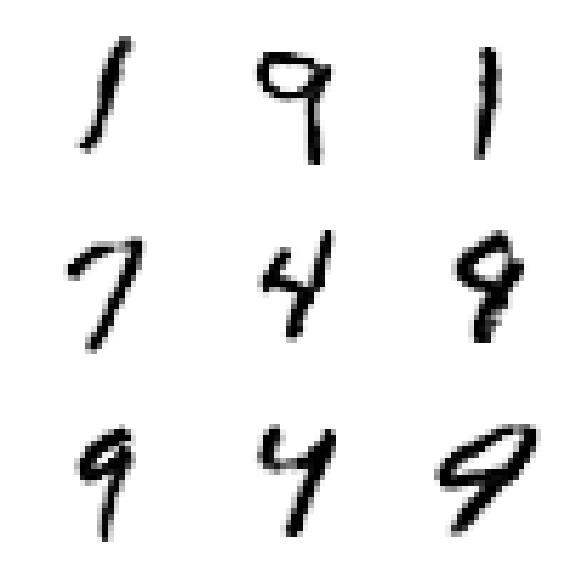 1 9 1
7 4 9
9 4 9